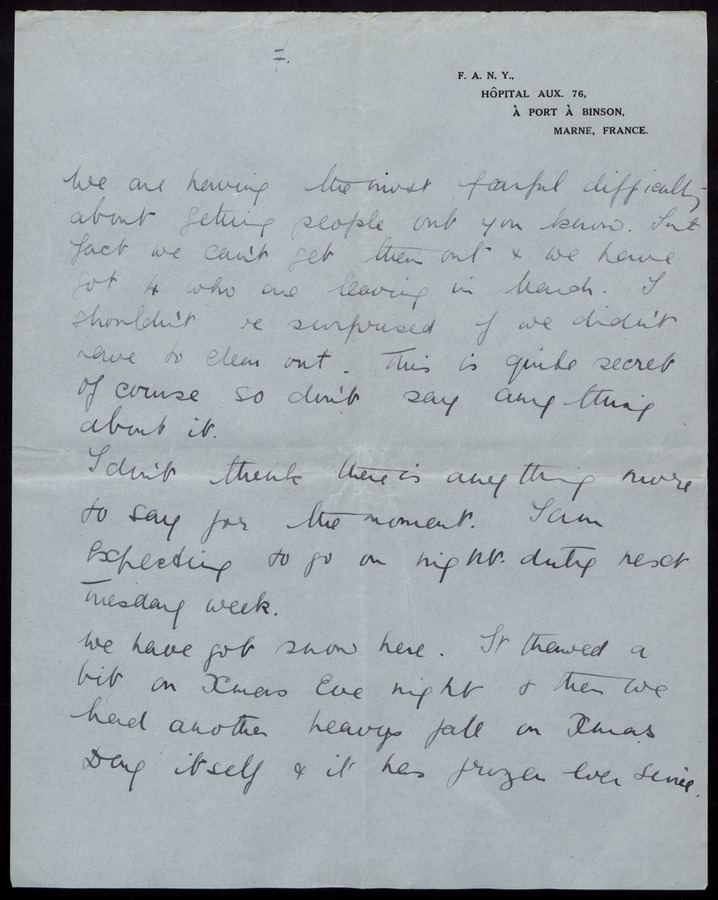 7.
F. A. N. Y.,
HÔPITAL AUX. 76,
À PORT À BINSON,
MARNE, FRANCE.
We are having the most fearful difficulty
about getting people out you know. In
fact we can't get them out & we have
got 4 who are leaving in March. I
shouldn't be surprised if we didn't
have to clear out. This is quite secret
of course so don't say anything
about it.
I don't think there is anything more
to say for the moment. I am
expecting to go on night duty next
Tuesday week.
We have got snow here. It thawed a
bit on Xmas Eve night & then we
had another heavy fall on Xmas
Day itself & it has frozen ever since.